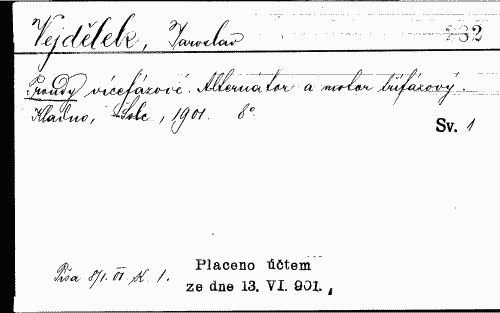 Vejdělek, Jaroslav 232
Proudy vícefázové. Alternátor a motor třífázový.
Kladno, Šolc, 1901. 8°
Sv. 1
Píša 8/1. VI. K. 1.
Placeno účtem
ze dne 13. VI. 901.